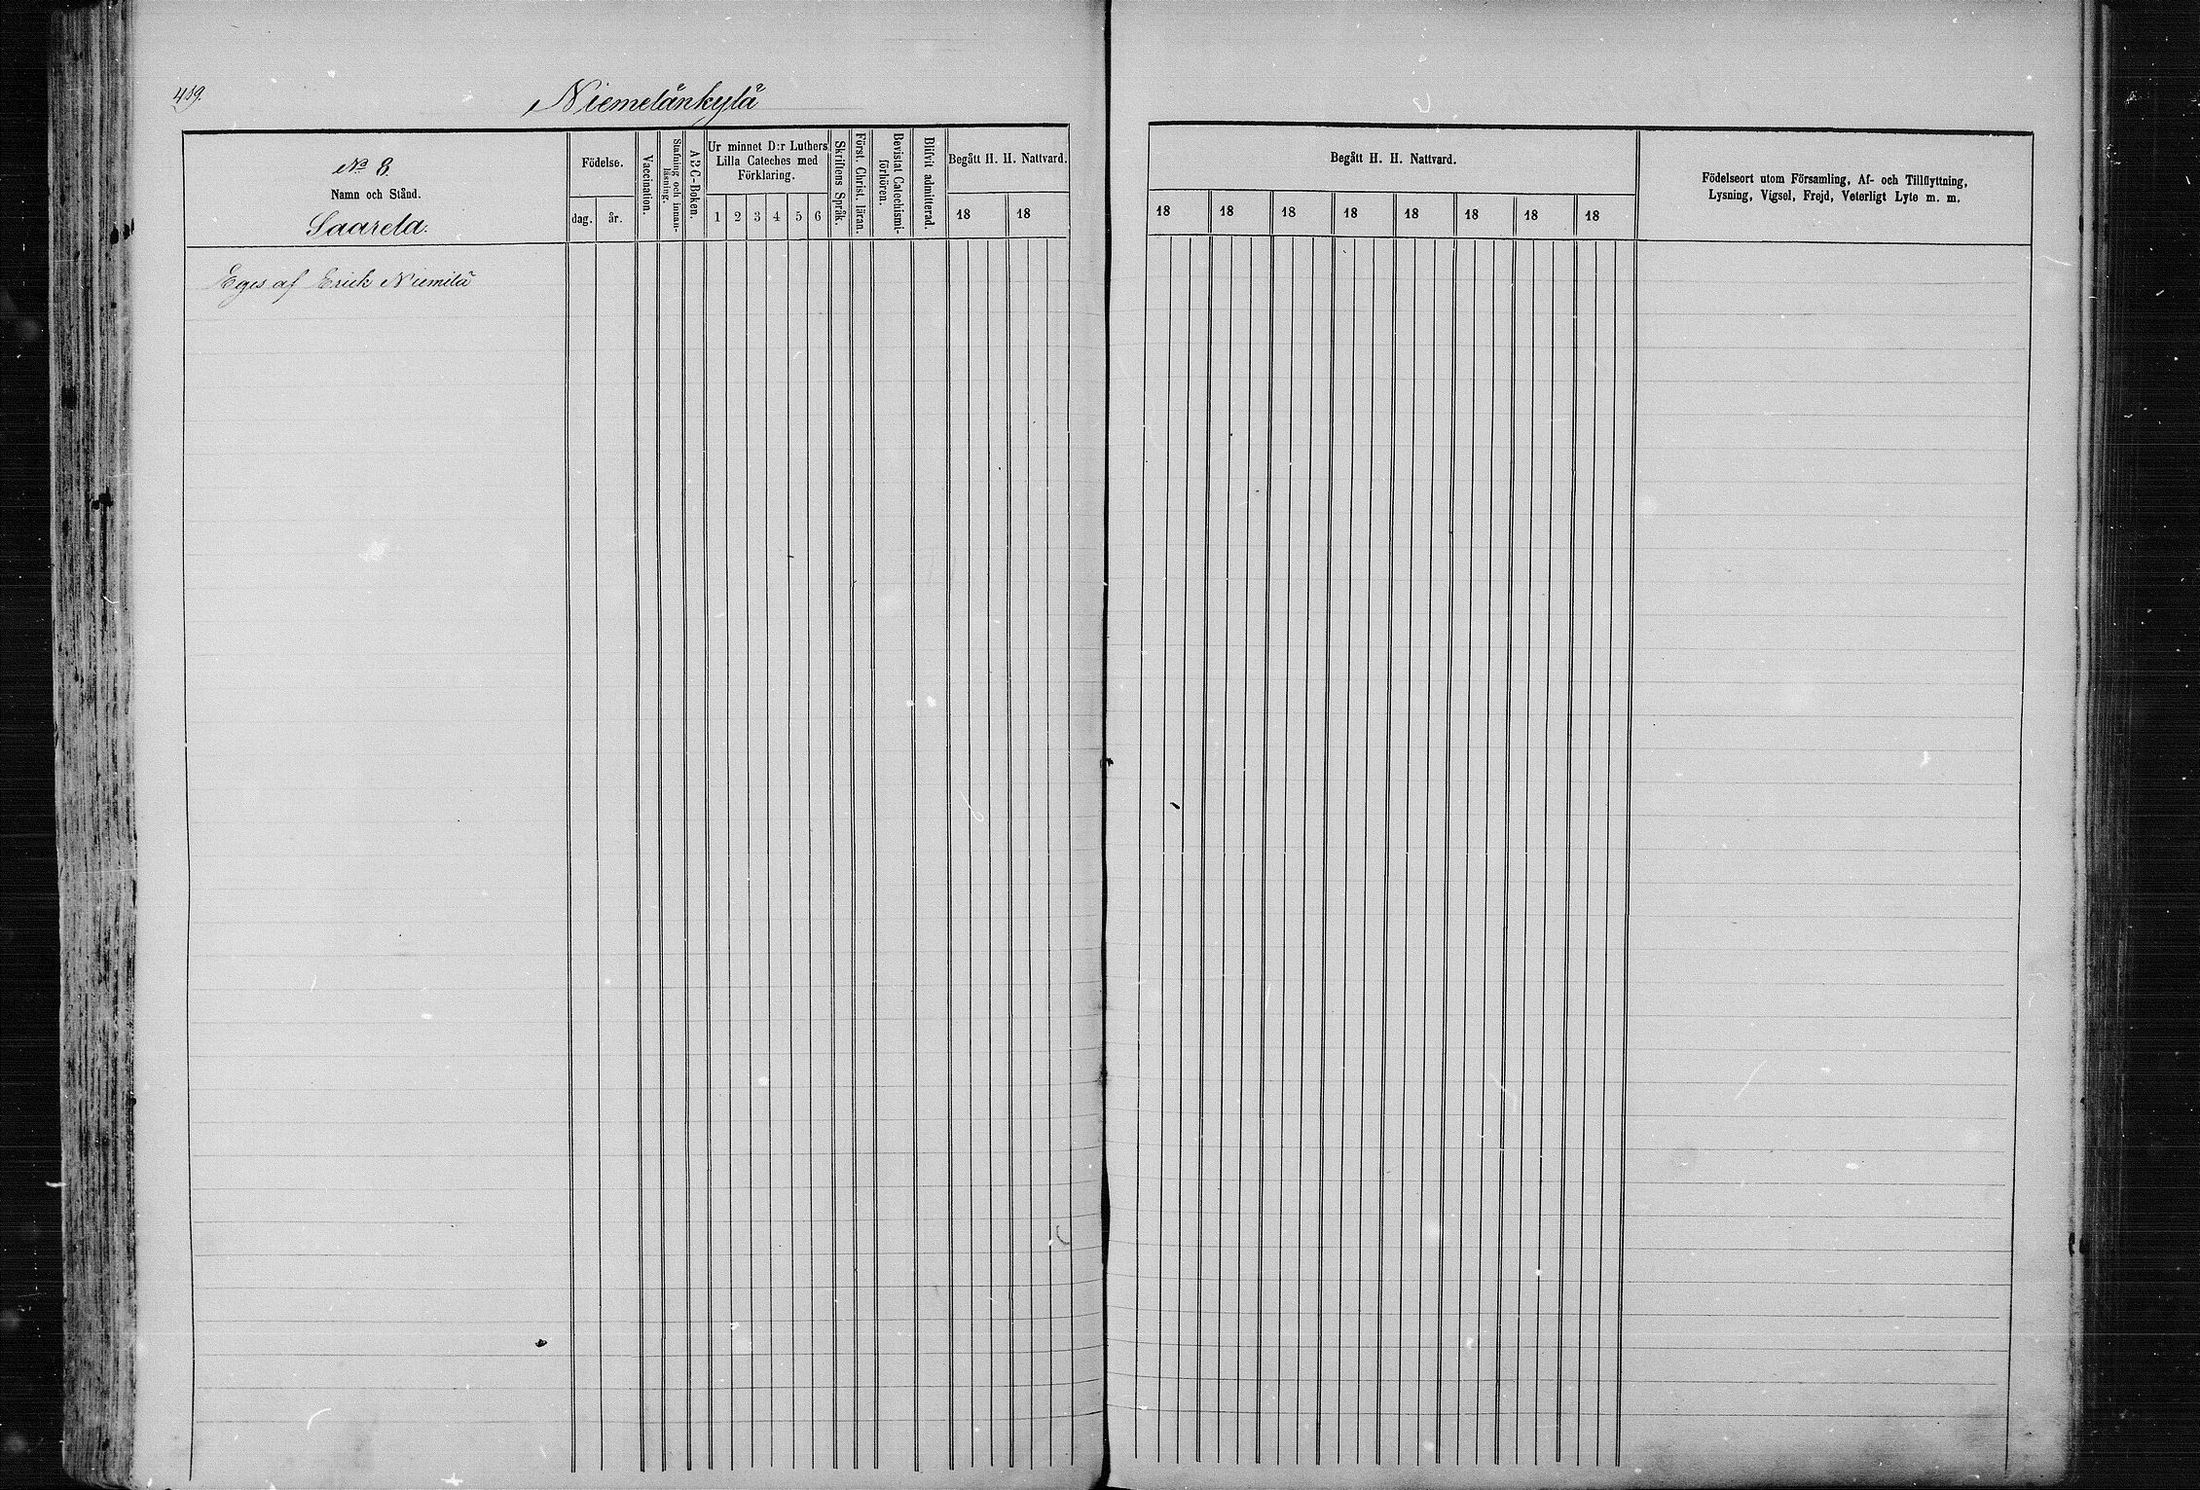 459.
Niemelänkylä
No 8.
Namn och Stånd.
Saarela.
Födelse.
dag.
år.
Vaccination.
Stafning och innan-
läsning.
ABC-Boken.
Ur minnet D:r Luthers
Lilla Cateches med
Förklaring.
1 2 3 4 5 6
Skriftens Språk.
Först. Christ. läran.
Bevistat Catechismi-
förhören.
Blifvit admitterad.
Begått H. H. Nattvard.
18 18
Eges af Erick Niemilä
Begått H. H. Nattvard.
18 18 18 18 18 18 18 18
Födelseort utom Församling, Af- och Tillflyttning,
Lysning, Vigsel, Frejd, Veterligt Lyte m. m.